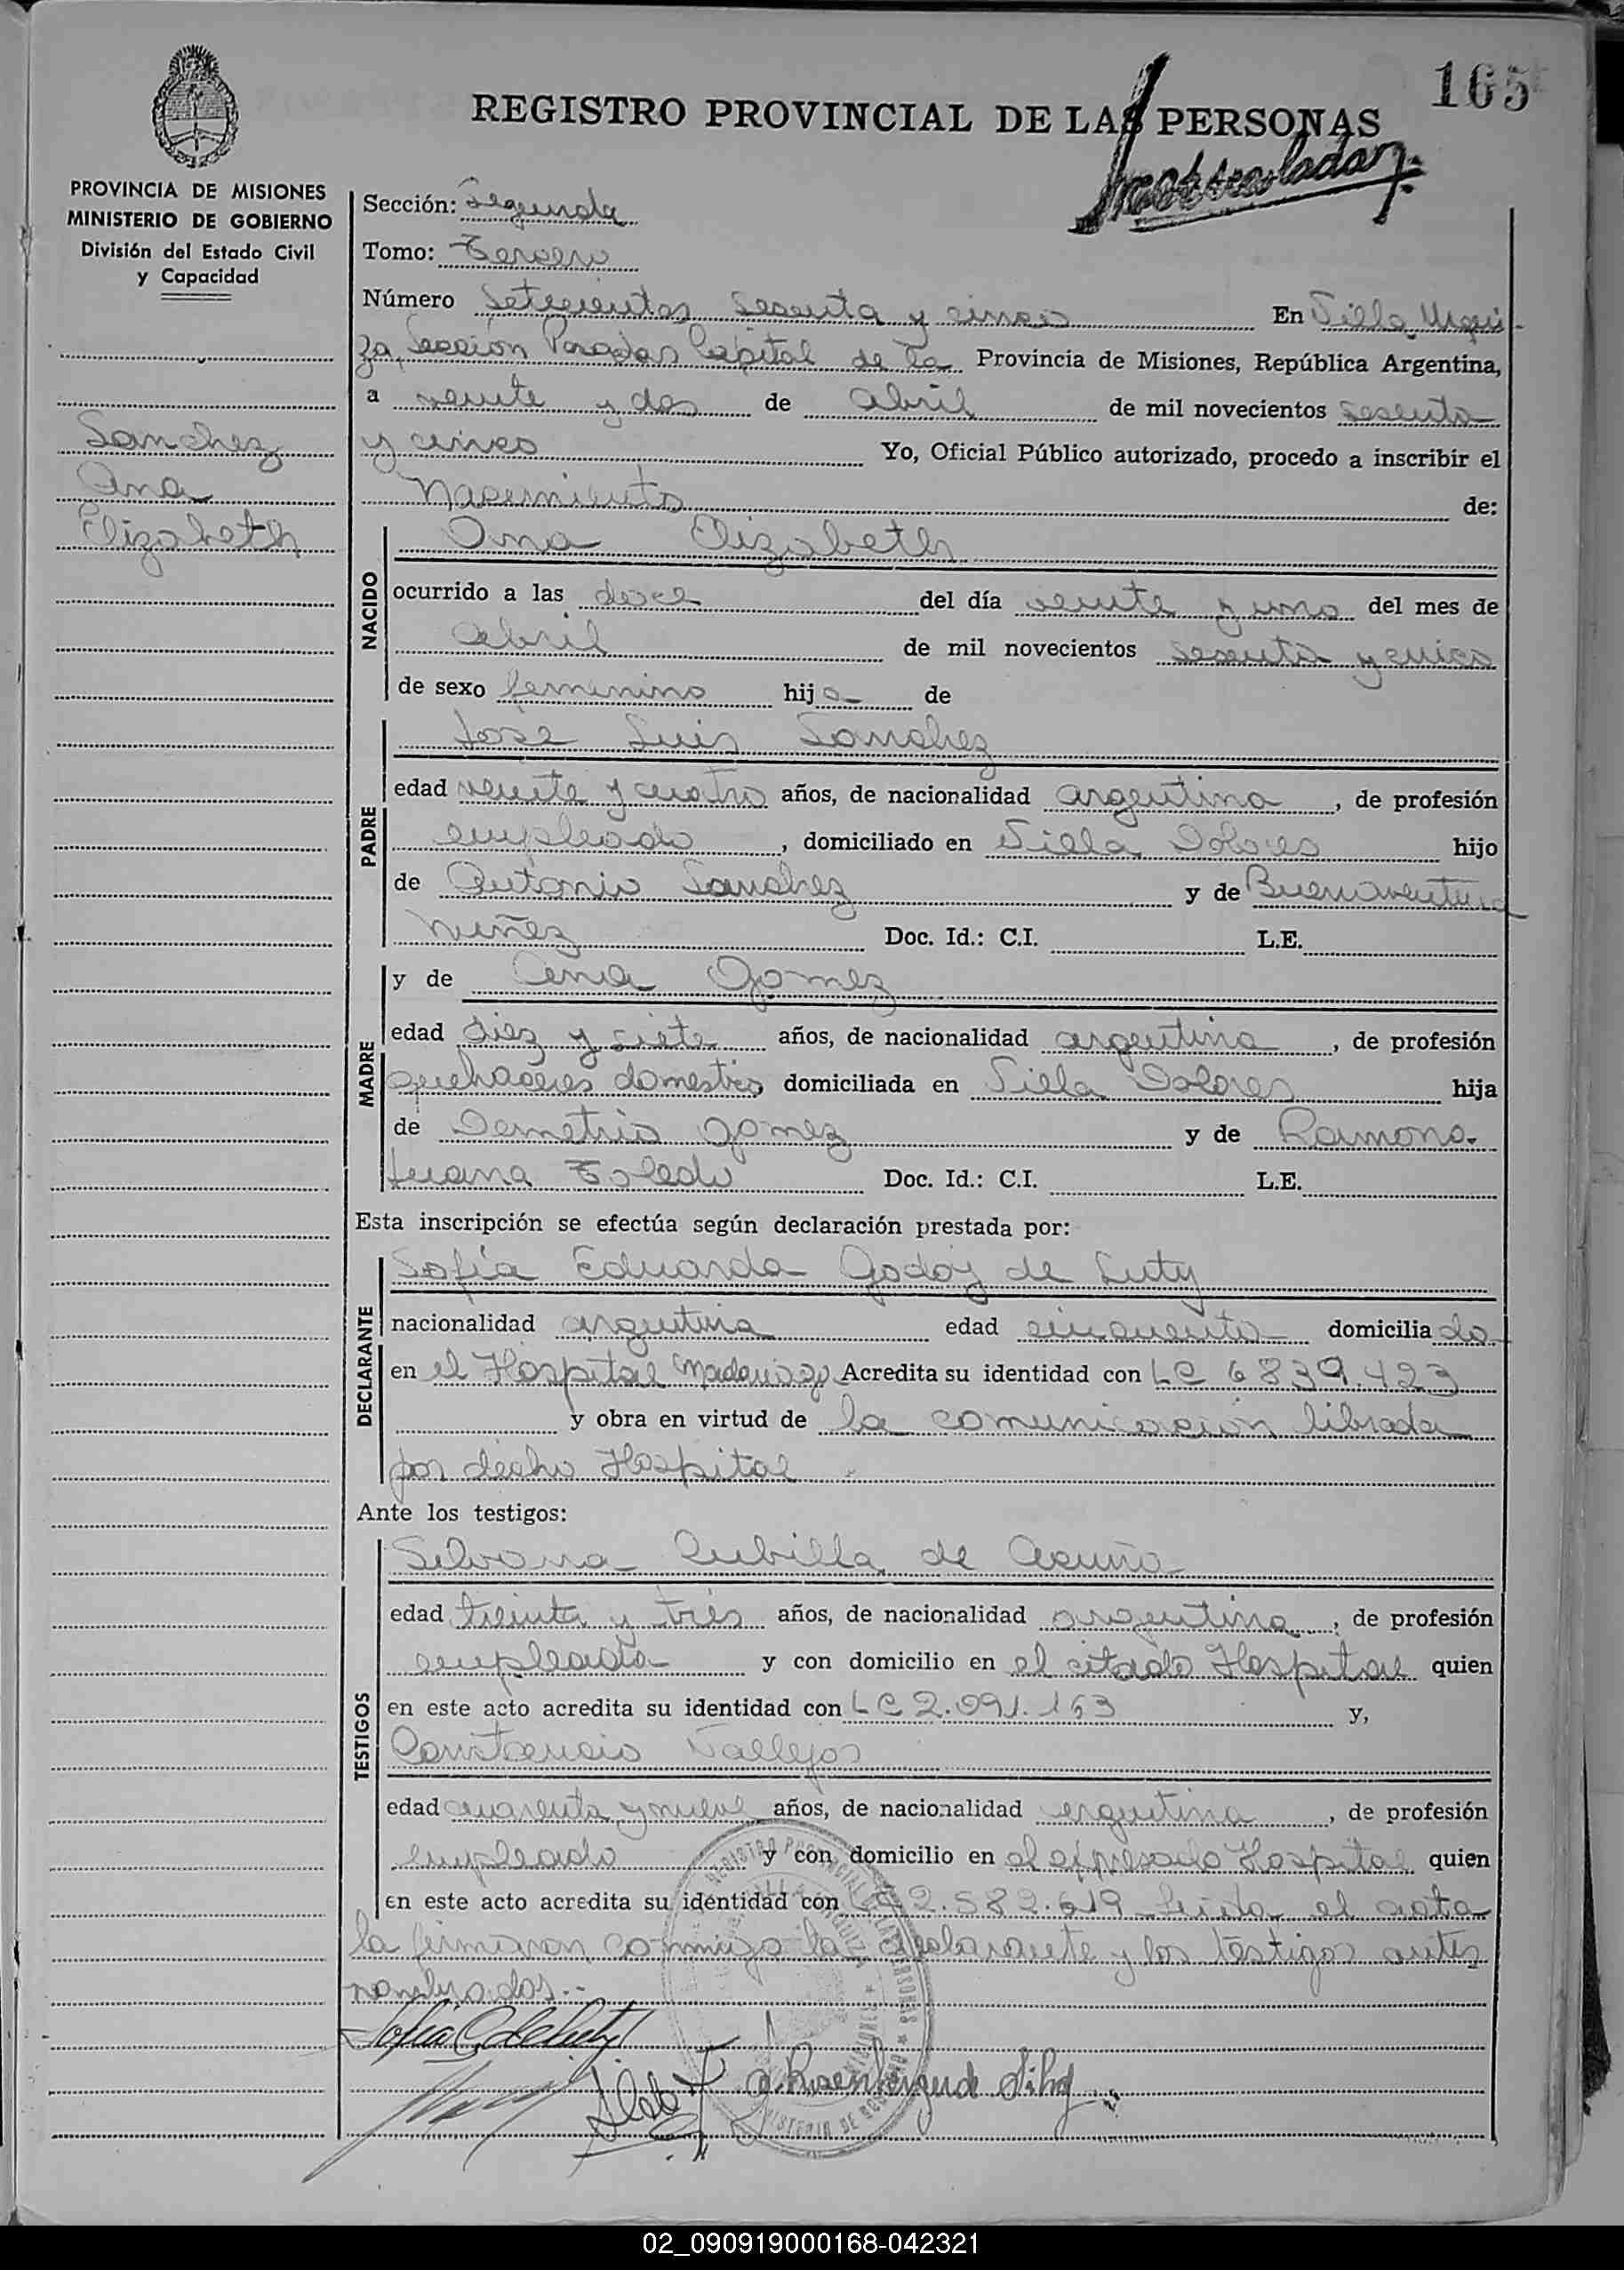 165
REGISTRO PROVINCIAL DE LAS PERSONAS
PROVINCIA DE MISIONES
MINISTERIO DE GOBIERNO
División del Estado Civil
y Capacidad
Sanchez
Ana
Elizabeth
Sección: Segunda
Tomo: Tercero
Número Setecientos sesenta y cinco En Villa Urqui-
za, Sección Posadas Capital de la Provincia de Misiones, República Argentina,
a veinte y dos de abril de mil novecientos sesenta
y cinco Yo, Oficial Público autorizado, procedo a inscribir el
Nacimiento de:
NACIDO
Ana Elizabeth
ocurrido a las doce del día veinte y uno del mes de
abril de mil novecientos sesenta y cinco
de sexo femenino hija de
PADRE
José Luis Sanchez
edad veinte y cuatro años, de nacionalidad argentina, de profesión
empleado, domiciliado en Villa Dolores hijo
de Antonio Sanchez y de Buenaventura
Nuñez Doc. Id.: C.I. L.E.
MADRE
y de Ana Gomez
edad diez y siete años, de nacionalidad argentina, de profesión
quehaceres domestico, domiciliada en Villa Dolores hija
de Demetrio Gomez y de Ramona
Juana Toledo Doc. Id.: C.I. L.E.
Esta inscripción se efectúa según declaración prestada por:
DECLARANTE
Sofía Eduarda Godoy de Luty
nacionalidad argentina edad cincuenta domiciliada
en el Hospital Madariaga Acredita su identidad con LC 6839.423
y obra en virtud de la comunicación librada
por dicho Hospital
Ante los testigos:
TESTIGOS
Silvana Cubilla de Acuña
edad treinta y tres años, de nacionalidad argentina, de profesión
empleada y con domicilio en el citado Hospital quien
en este acto acredita su identidad con LC 2.091.153 y,
Constancio Vallejos
edad cuarenta y nueve años, de nacionalidad argentina, de profesión
empleado y con domicilio en el expresado Hospital quien
en este acto acredita su identidad con 2.582.619 Leida el acta
la firmaron conmigo la declarante y los testigos antes
nombrados.-
Sofia G de Luty
02_090919000168-042321